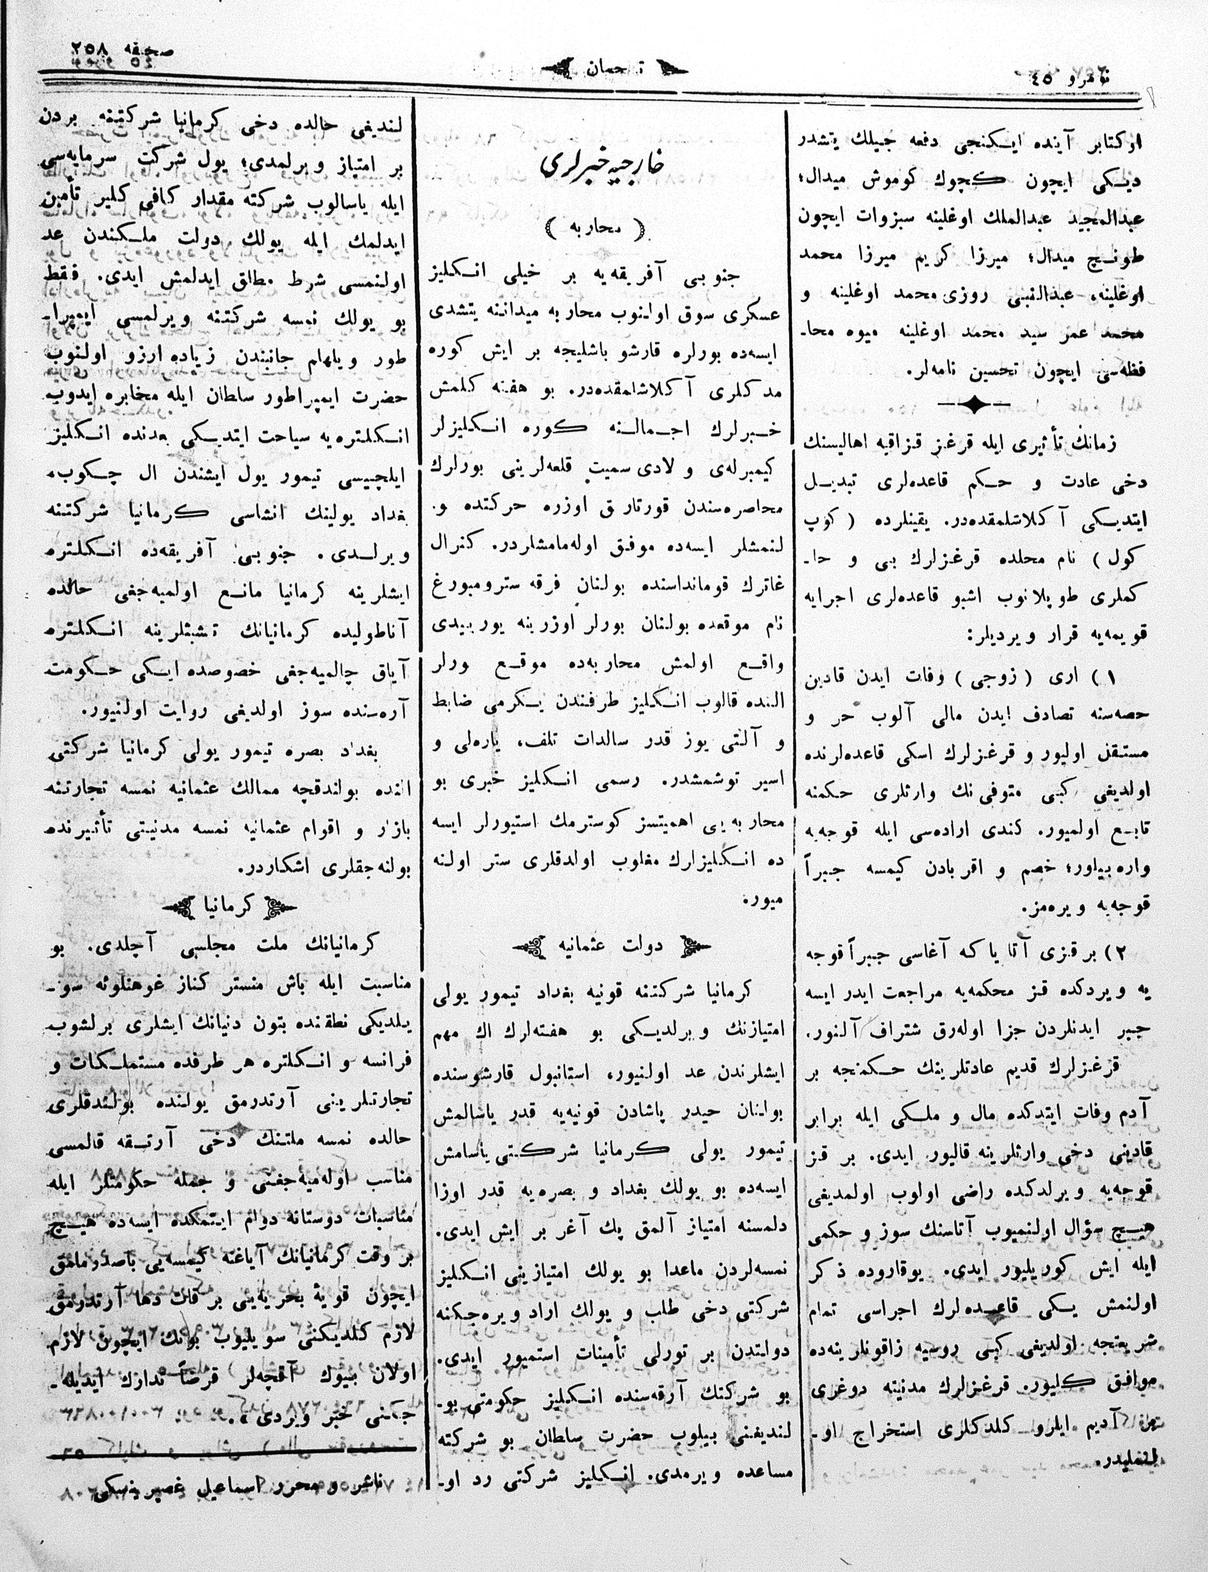 نومرو ٤٥
ترجمان
صحیفه ٢٥٨
اوکتابر آینده ایکنجی دفعه جیبلك یتشدر
دیکی ایچون کچوك کوموش میدال؛
عبدالمجید عبدالملك اوغلینه سبزوات ایچون
طونچ میدال؛ میرزا کریم میرزا محمد
اوغلینه، عبدالنبی روزی محمد اوغلینه و
محمد عمر سید محمد اوغلینه میوه محا-
فظه‌سی ایچون تحسین نامه‌لر.
زمانك تأثیری ایله قرغز قزاقیه اهالیسنك
دخی عادت و حکم قاعده‌لری تبدیل
ایتدیکی آکلاشلمقده‌در. یقینلرده (کوپ
کول) نام محلده قرغزلرك بی و حا-
کملری طوپلانوب اشبو قاعده‌لری اجرایه
قویمه‌یه قرار ویردیلر:
١) اری (زوجی) وفات ایدن قادین
حصه‌سنه تصادف ایدن مالی آلوب حر و
مستقل اولیور و قرغزلرك اسکی قاعده‌لرنده
اولدیغی کبی متوفی‌نك وارثلری حکمنه
تابع اولمیور. کندی اراده‌سی ایله قوجه‌یه
واره بیلور؛ خصم و اقربادن کیمسه جبراً
قوجه‌یه ویره‌مز.
٢) بر قزی آتا یا که آغاسی جبراً قوجه
یه ویردکده قز محکمه‌یه مراجعت ایدر ایسه
جبر ایدنلردن جزا اوله‌رق شتراف آلنور.
قرغزلرك قدیم عادتلرینك حکمنجه بر
آدم وفات ایتدکده مال و ملکی ایله برابر
قادینی دخی وارثلرینه قالیور ایدی. بر قز
قوجه‌یه ویرلدکده راضی اولوب اولمدیغی
هیچ سؤال اولنمیوب آتاسنك سوز و حکمی
ایله ایش کوریلیور ایدی. یوقاروده ذکر
اولنمش یکی قاعده‌لرك اجراسی تمام
شریعتجه اولدیغی کبی روسیه زاقونلرینه‌ده
موافق کلیور. قرغزلرك مدنیته دوغری
بر آدیم ایلرو کلدکلری استخراج او-
لنملیدر.
خارجیه خبرلری
(محاربه)
جنوبی آفریقه‌یه بر خیلی انکلیز
عسکری سوق اولنوب محاربه میداننه یتشدی
ایسه‌ده بورلره قارشو باشلیجه بر ایش کوره
مدکلری آکلاشلمقده‌در. بو هفته کلمش
خبرلرك اجمالنه کوره انکلیزلر
کیمبرله‌ی و لادی سمیت قلعه‌لرینی بورلرك
محاصره‌سندن قورتارق اوزره حرکتده و.
لنمشلر ایسه‌ده موفق اوله‌مامشلردر. کنرال
غاترك قومانداسنده بولنان فرقه سترومبورغ
نام موقعده بولنان بورلر اوزرینه یوریدی
واقع اولمش محاربه‌ده موقع ورلر
النده قالوب انکلیز طرفندن یکرمی ضابط
و آلتی یوز قدر سالدات تلف، یاره‌لی و
اسیر توشمشدر. رسمی انکلیز خبری بو
محاربه‌یی اهمیتسز کوسترمك استیورلر ایسه
ده انکلیزلرك مغلوب اولدقلری ستر اولنه
میور.
دولت عثمانیه
کرمانیا شرکتنه قونیه بغداد تیمور یولی
امتیازنك ویرلدیکی بو هفته‌لرك اك مهم
ایشلرندن عد اولنیور، استانبول قارشوسنده
بولنان حیدر پاشادن قونیه‌یه قدر یاسالمش
تیمور یولی کرمانیا شرکتی یاسامش
ایسه‌ده بو یولك بغداد و بصره‌یه قدر اوزا
دلمسنه امتیاز آلمق پك آغر بر ایش ایدی.
نمسه‌لردن ماعدا بو یولك امتیازینی انکلیز
شرکتی دخی طلب و یولك اراد ویره‌جکنه
دولتدن بر تورلی تأمینات استمیور ایدی.
بو شرکتك آرقه‌سنده انکلیز حکومتی بو-
لندیغنی بیلوب حضرت سلطان بو شرکته
مساعده ویرمدی. انکلیز شرکتی رد او-
لندیغی حالده دخی کرمانیا شرکتنه بردن
بر امتیاز ویرلمدی؛ یول شرکت سرمایه‌سی
ایله یاسالوب شرکته مقدار کافی کلیر تأمین
ایدلمك ایله یولك دولت ملکندن عد
اولنمسی شرط مطلق ایدلمش ایدی. فقط
بو یولك نمسه شرکتنه ویرلمسی ایمپرا-
طور ویلهلم جانبندن زیاده آرزو اولنوب
حضرت ایمپراطور سلطان ایله مخابره ایدوب
انکلتره‌یه سیاحت ایتدیکی بعدنده انکلیز
ایلچیسی تیمور یول ایشندن ال چکوب،
بغداد یولینك انشاسی کرمانیا شرکتنه
ویرلدی. جنوبی آفریقه‌ده انکلتره
ایشلرینه کرمانیا مانع اولمیه‌جغی حالده
آناطولیده کرمانیانك تشبثلرینه انکلتره
آیاق چالمیه‌جغی خصوصده ایکی حکومت
آره‌سنده سوز اولدیغی روایت اولنیور.
بغداد بصره تیمور یولی کرمانیا شرکتی
النده بولندقچه ممالك عثمانیه نمسه تجارتنه
بازار و اقوام عثمانیه نمسه مدنیتی تأثیرنده
بولنه‌جقلری اشکاردر.
کرمانیا
کرمانیانك ملت مجلسی آچلدی. بو
مناسبت ایله باش منستر کناز غوهنلوئه سو-
یلدیکی نطقنده بتون دنیانك ایشلری برلشوب
فرانسه و انکلتره هر طرفده مستملکات و
تجارتلرینی آرتدرمق یولنده بولندقلری
حالده نمسه ملتنك دخی آرتقه قالمسی
مناسب اوله‌میه‌جغنی و جمله حکومتلر ایله
مناسبات دوستانه دوام ایتمکده ایسه‌ده هیچ
بر وقت کرمانیانك آیاغنه کیمسه‌یی باصدرمامق
ایچون قوۀ بحریه‌یی بر قات دها آرتدرمق
لازم کلدیکنی سویلیوب بونك ایچون لازم
اولان بیوك آقچه‌لر قرضاً تدارك ایدیله-
جکنی خبر ویردی.
ناشر و محرر اسماعیل غصپرینسکی